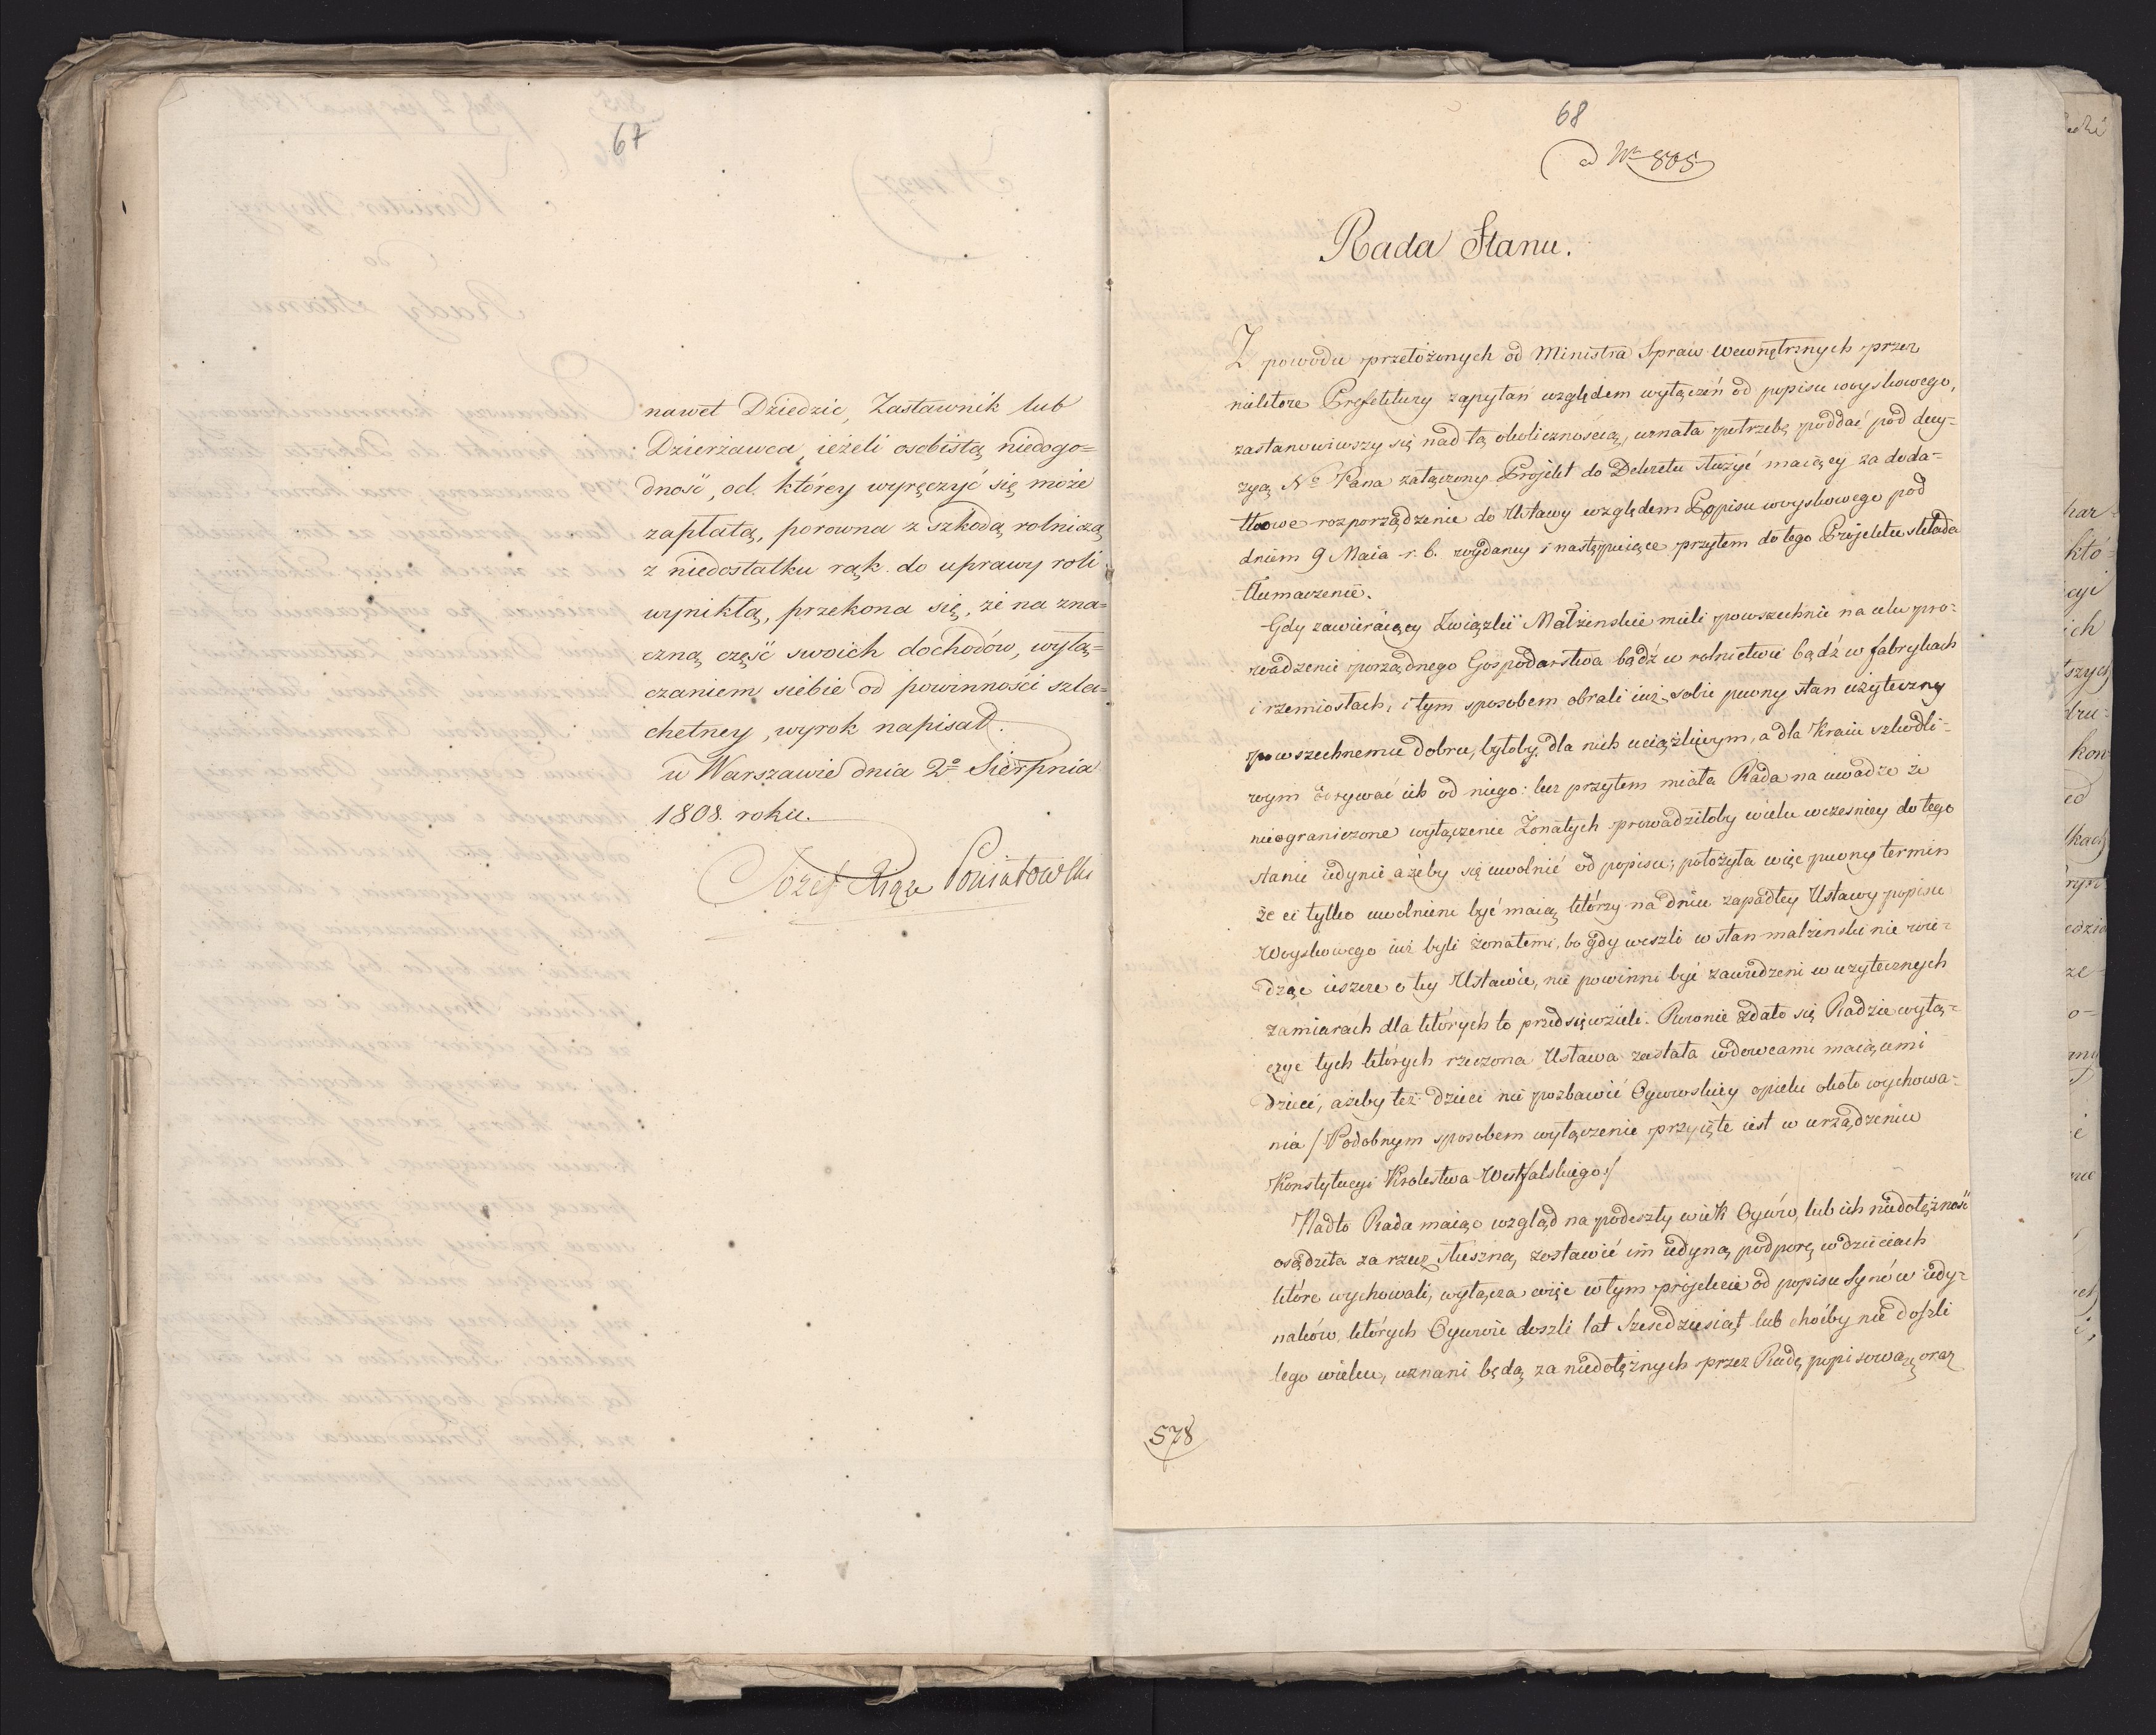 67
nawet Dziedzic, Zastawnik lub
Dzierżawca, ieżeli osobistą niedogo=
dność, od którey wyręczyć się może
zapłatą, porowna z szkodą rolniczą
z niedostatku rąk do uprawy roli
wynikłą, przekona się, że na zna=
czną część swoich dochodów, wyłą=
czaniem siebie od powinności szla=
chetney, wyrok napisał.
w Warszawie dnia 2º Sierpnia
1808. roku.
Józef Xiąże Poniatowski
68
ad Nrm 805
Rada Stanu.
Z powodu przełożonych od Ministra Spraw Wewnętrznych przez
niektore Prefektury zapytań względem wyłączeń od popisu woyskowego,
zastanowiwszy się nad tą okolicznością, uznała potrzebę poddać pod decy-
zyą No Pana załączony Projekt do Dekretu służyć maiący za doda-
tkowe rozporządzenie do Ustawy względem Popisu woyskowego pod
dniem 9 Maia r. b. wydaney i następuiące przytem do tego Projektu składa
tłumaczenie.
Gdy zawieraiący Związki Małżenskie mieli powszechnie na celu pro-
wadzenie porządnego Gospodarstwa bądź w rolnictwie bądź w fabrykach
i rzemiosłach, i tym sposobem obrali iuż sobie pewny stan użyteczny
powszechnemu dobru, byłoby dla nich uciążliwym, a dla Kraiu szkodli-
wym odrywać ich od niego: lecz przytem miała Rada na uwadze że
nieograniczone wyłączenie Żonatych prowadziłoby wielu wczesniey do tego
stanu iedynie ażeby się uwolnić od popisu; położyła więc pewny termin
że ci tylko uwolnieni być maią którzy na dniu zapadłey Ustawy popisu
Woyskowego iuż byli żonatemi, bo gdy weszli w stan małżenski nie wie-
dząc ieszcze o tey Ustawie, nie powinni być zawiedzeni w użytecznych
zamiarach dla których to przedsięwzieli. Rownie zdało się Radzie wyłą-
czyć tych których rzeczona Ustawa zastała wdowcami maiącemi
dzieci, ażeby też dzieci nie pozbawić Oycowskiey opieki około wychowa-
nia /: Podobnym sposobem wyłączenie przyięte iest w urządzeniu
Konstytucyi Krolestwa Westfalskiego :/
Nadto Rada maiąc wzgląd na podeszły wiek Oyców, lub ich niedołężność
osądziła za rzecz słuszną, zostawić im iedyną podporę w dzieciach
które wychowali, wyłącza więc w tym projekcie od popisu Synów iedy-
naków, których Oycowie doszli lat Sześćdziesiąt lub choćby nie doszli
tego wieku, uznani będą za niedołężnych przez Radę popisową, oraz
578